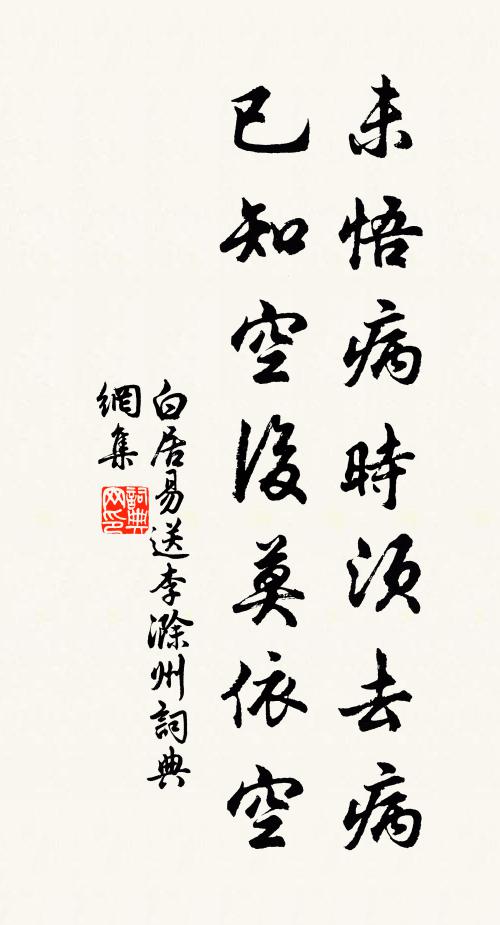 未悟病時須去病
已知空後莫依空
白居易送李滁州詞典
網集
詞典
网印